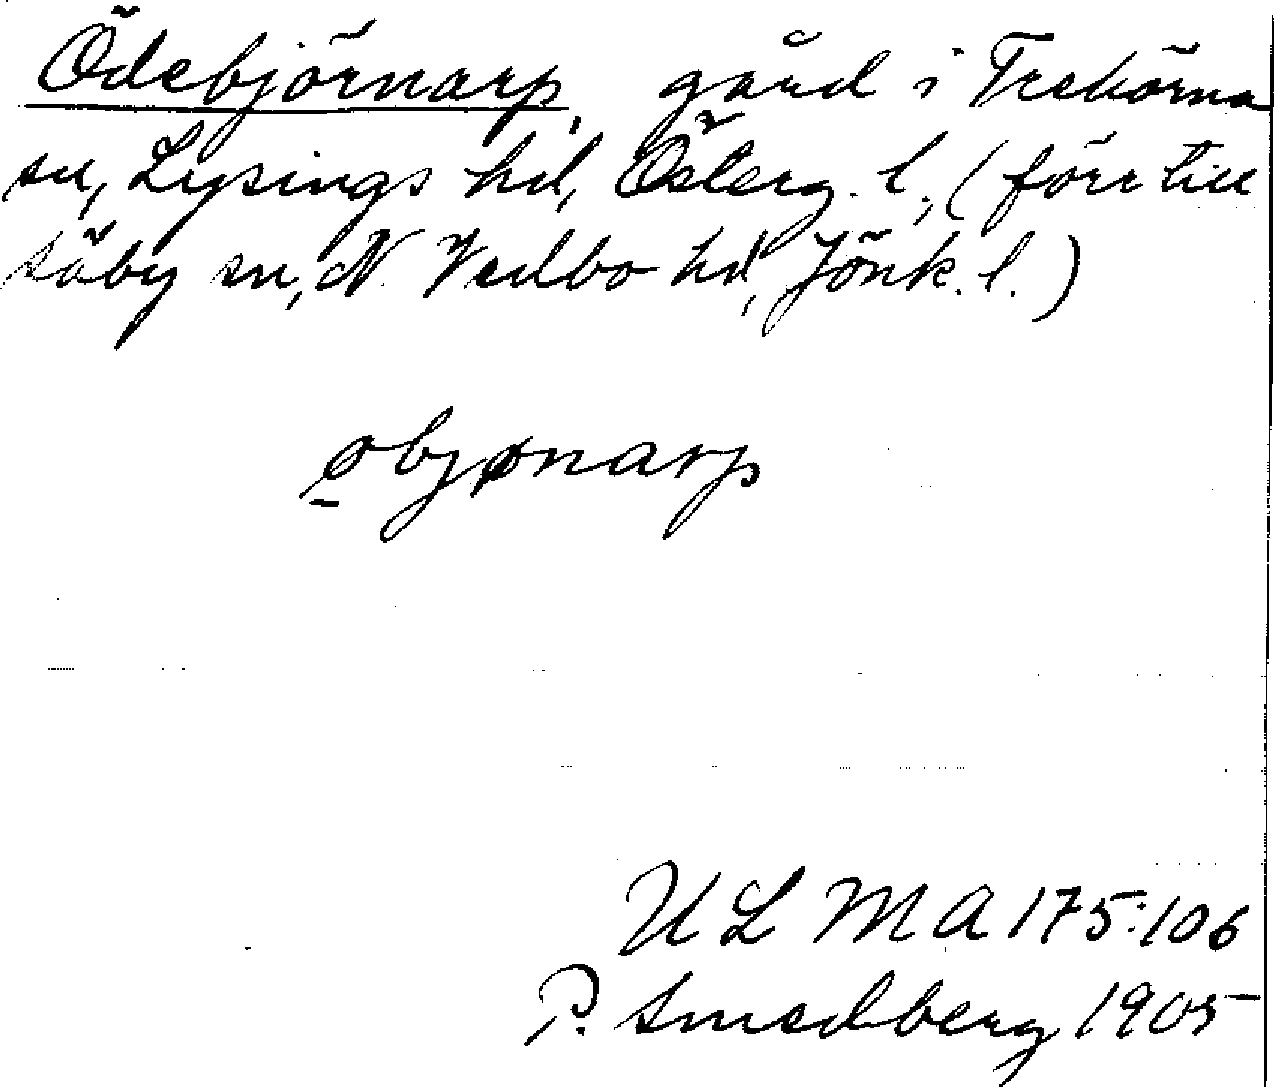 Ödebjörnarp, gård i Trehörna
sn, Lysings hd, Österg. l., (förr till
Säby sn, N. Vedbo hd, Jönk. l.)
øbjønarp
ULMA 175:106
P. Smedberg 1905